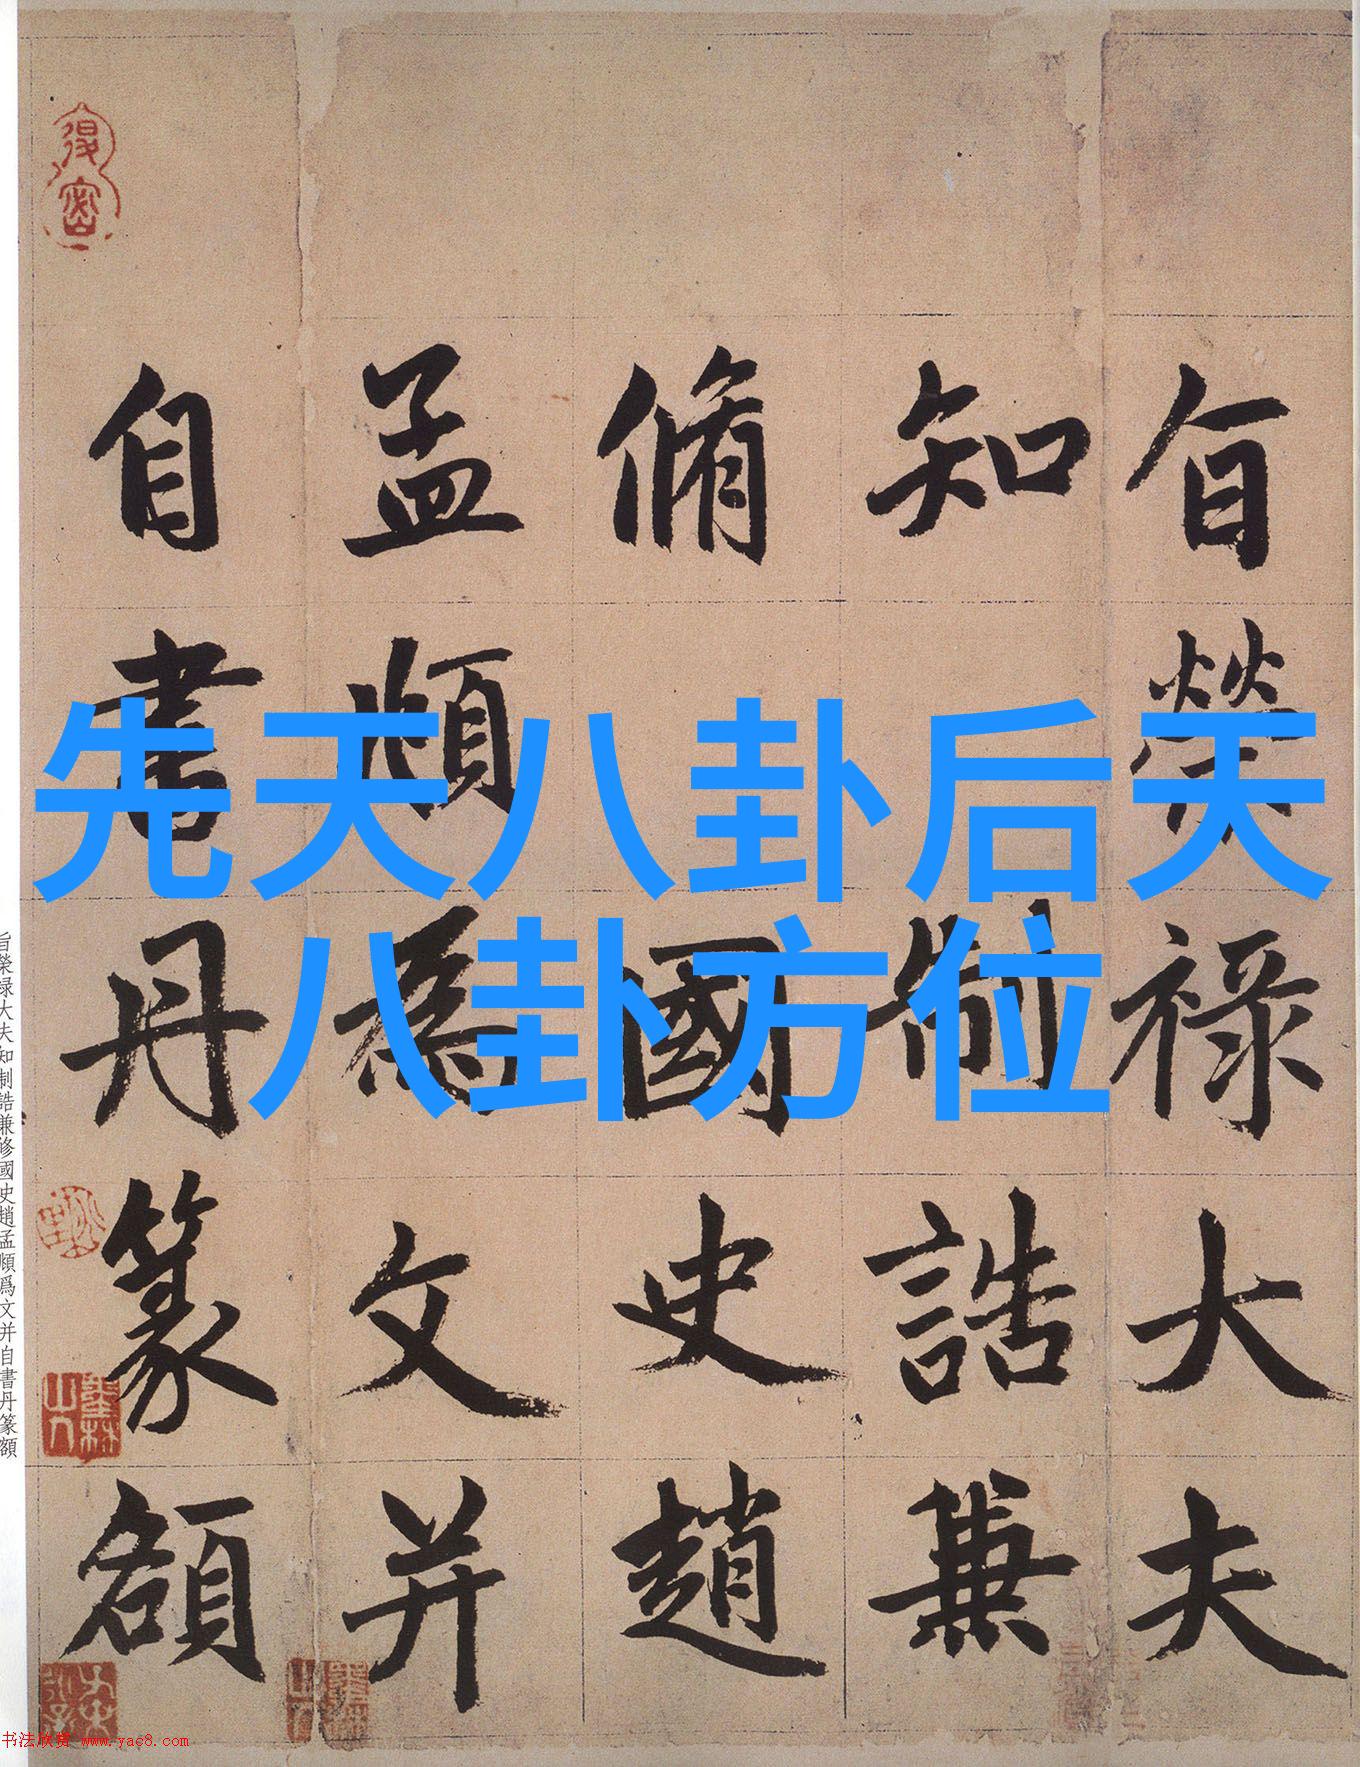 先天八卦后天
八卦方位
旨榮祿大夫
知制誥兼
脩國史趙
孟頫為文并
自書丹篆額
旨榮禄大夫知制誥兼修國史趙孟頫爲文并自書丹篆額
书法欣赏 www.yac8.com